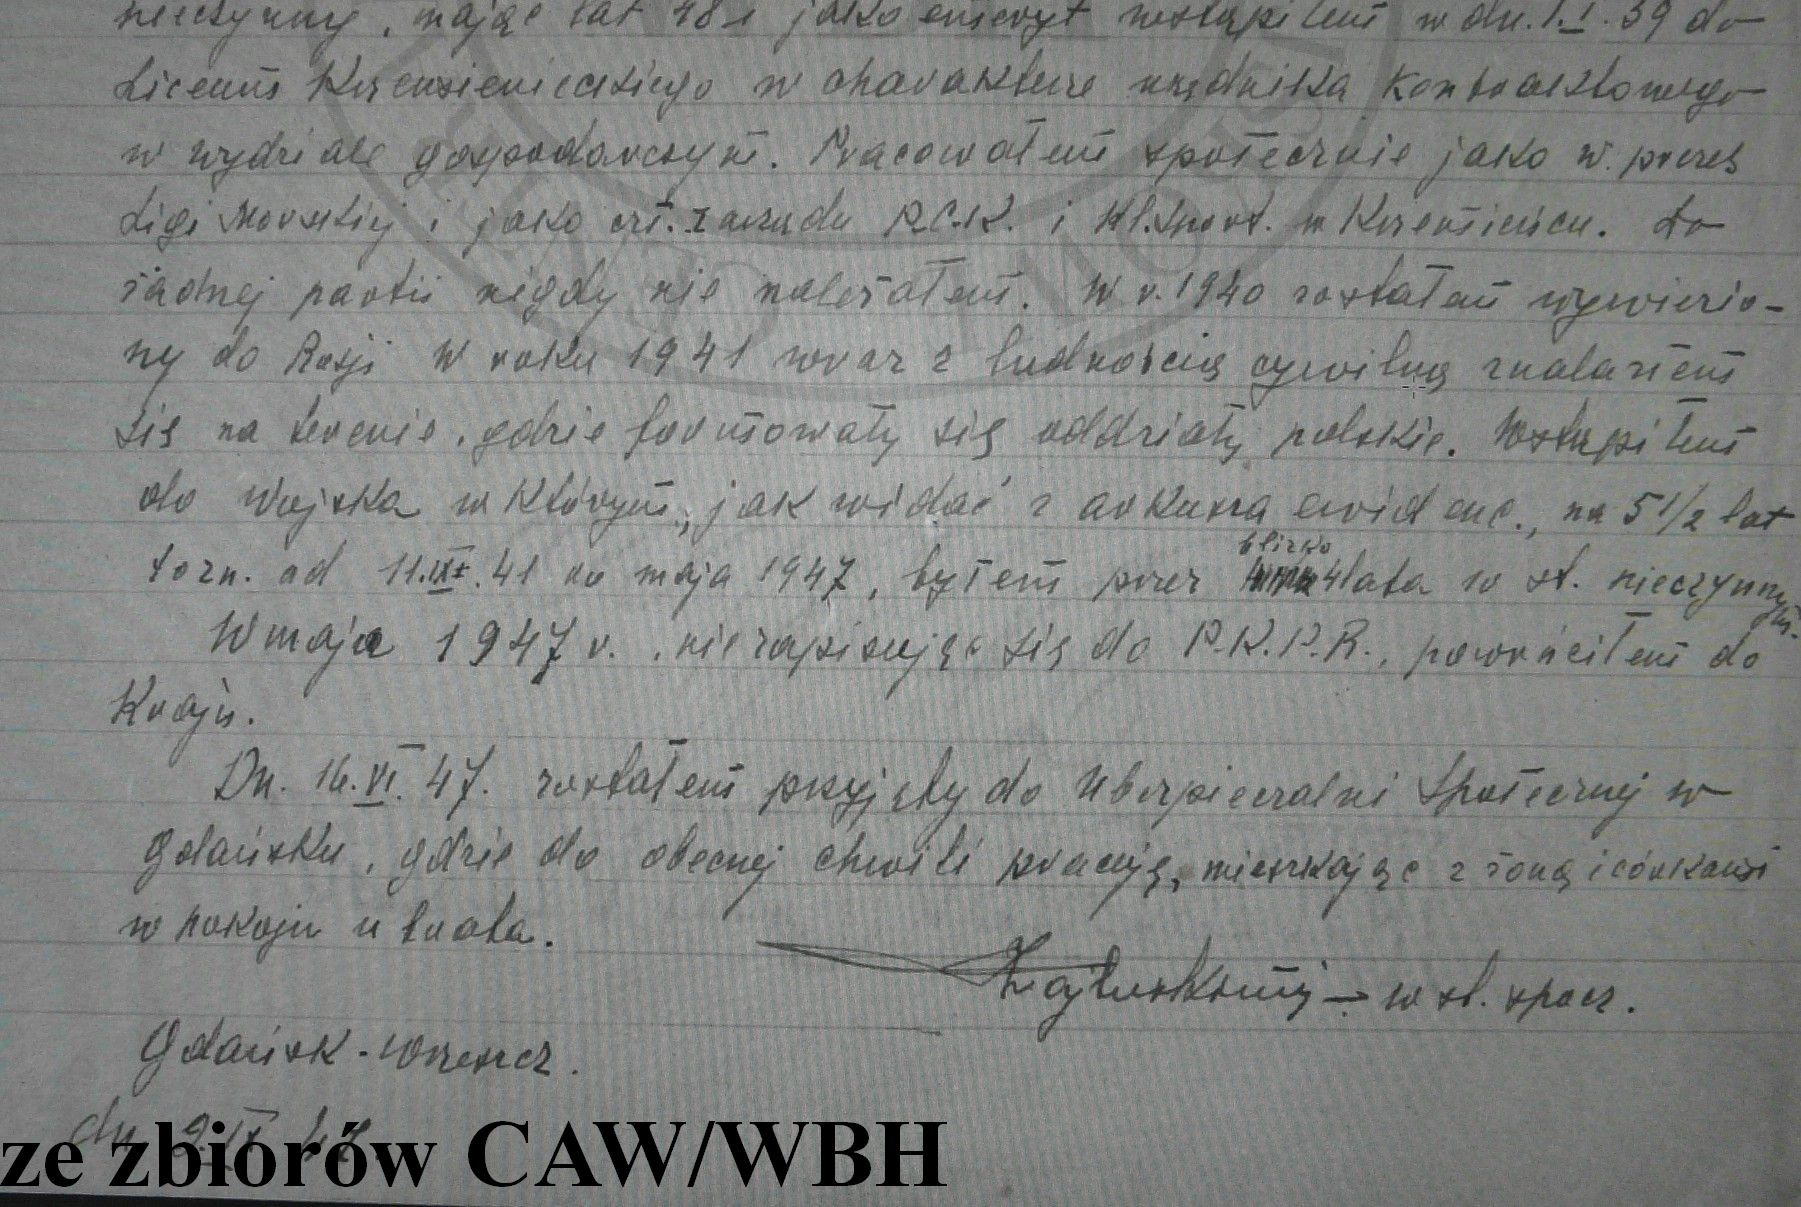 nieczynny, mając lat 48 i jako emeryt wstąpiłem w dn. 1.I.39 do
Liceum Krzemienieckiego w charakterze urzędnika kontraktowego
w wydziale gospodarczym. Pracowałem społecznie jako w. prezes
Ligi Morskiej i jako czł. zarządu P.C.K. i Kl. Sport. w Krzemieńcu. Do
żadnej partii nigdy nie należałem. W r. 1940 zostałem wywiezio-
ny do Rosji W roku 1941 wraz z ludnością cywilną znalazłem
się na terenie, gdzie formowały się oddziały polskie. Wstąpiłem
do Wojska w którym, jak widać z arkusza ewidenc., na 5 1/2 lat
to zn. od 11.IX.41 do maja 1947, byłem przez blizko 4 lata w st. nieczynnym.
W maju 1947 r., nie zapisując się do P.K.P.R., powróciłem do
Kraju.
Dn. 16.VI.47. zostałem przyjęty do Ubezpieczalni Społecznej w
Gdańsku, gdzie do obecnej chwili pracuję, mieszkając z żoną i córkami
w pokoju u brata.
w st. spocz.
Gdańsk-Wrzeszcz.
dn.
ze zbiorów CAW/WBH